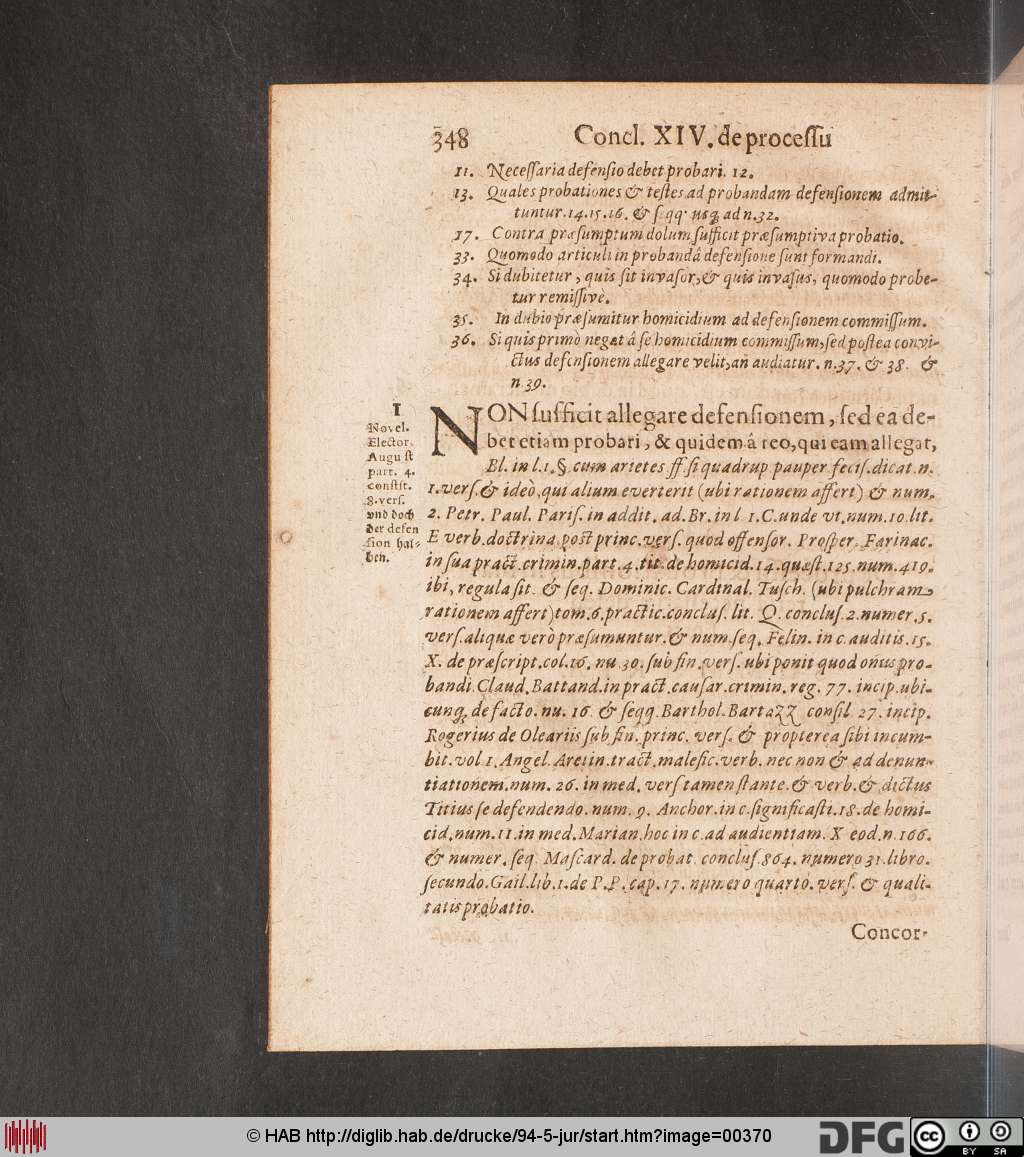 348 Concl. XIV. de processu
11. Necessaria defensio debet probari. 12.
13. Quales probationes & testes ad probandam defensionem admit-
tuntur. 14. 15. 16. & seqq. usq; ad n. 32.
17. Contra præsumptum dolum sufficit præsumptiva probatio.
33. Quomodo articuli in probandâ defensione sunt formandi.
34. Si dubitetur, quis sit invasor, & quis invasus, quomodo probe-
tur remissivè.
35. In dubio præsumitur homicidium ad defensionem commissum.
36. Si quis primò negat â se homicidium commissum, sed postea convi-
ctus defensionem allegare velit, an audiatur. n. 37. & 38. &
n. 39.
1
Novel.
Elector.
August
part. 4.
constit.
8. vers.
und doch
der defen
sion hal-
ben.
NON sufficit allegare defensionem, sed ea de-
bet etiam probari, & quidem â reo, qui eam allegat,
Bl. in l. 1. §. cum arietes ff. si quadrup. pauper. fecis. dicat. n.
1. vers. & ideò, qui alium everterit (ubi rationem affert) & num.
2. Petr. Paul. Paris. in addit. ad. Br. in l 1. C. unde vt. num. 10. lit.
E verb. doctrina post princ. vers. quod offensor. Prosper. Farinac.
in sua pract. crimin. part. 4. tit. de homicid. 14. quæst. 125. num. 419.
ibi, regula sit. & seq. Dominic. Cardinal. Tusch. (ubi pulchram
rationem affert) tom. 6. practic. conclus. lit. Q. conclus. 2. numer. 5.
vers. aliquæ verò præsumuntur. & num. seq. Felin. in c. auditis. 15.
X. de præscript. col. 16. nu. 30. sub fin. vers. ubi ponit quod onus pro-
bandi. Claud. Battand. in pract. causar. crimin. reg. 77. incip. ubi-
cunq; de facto. nu. 16. & seqq. Barthol. Bartazz. consil. 27. incip.
Rogerius de Oleariis sub fin. princ. vers. & propterea sibi incum-
bit. vol. 1. Angel. Aretin. tract. malefic. verb. nec non & ad denun-
tiationem. num. 26. in med. vers tamen stante. & verb. & dictus
Titius se defendendo. num. 9. Anchor. in c. significasti. 18. de homi-
cid. num. 11. in med. Marian. hoc in c. ad audientiam. X eod. n. 166.
& numer. seq. Mascard. de probat. conclus. 864. numero 31. libro.
secundo. Gail. lib. 1. de P. P. cap. 17. numero quarto. vers. & quali-
tatis probatio.
Concor-
© HAB http://diglib.hab.de/drucke/94-5-jur/start.htm?image=00370
DFG
cc BY SA